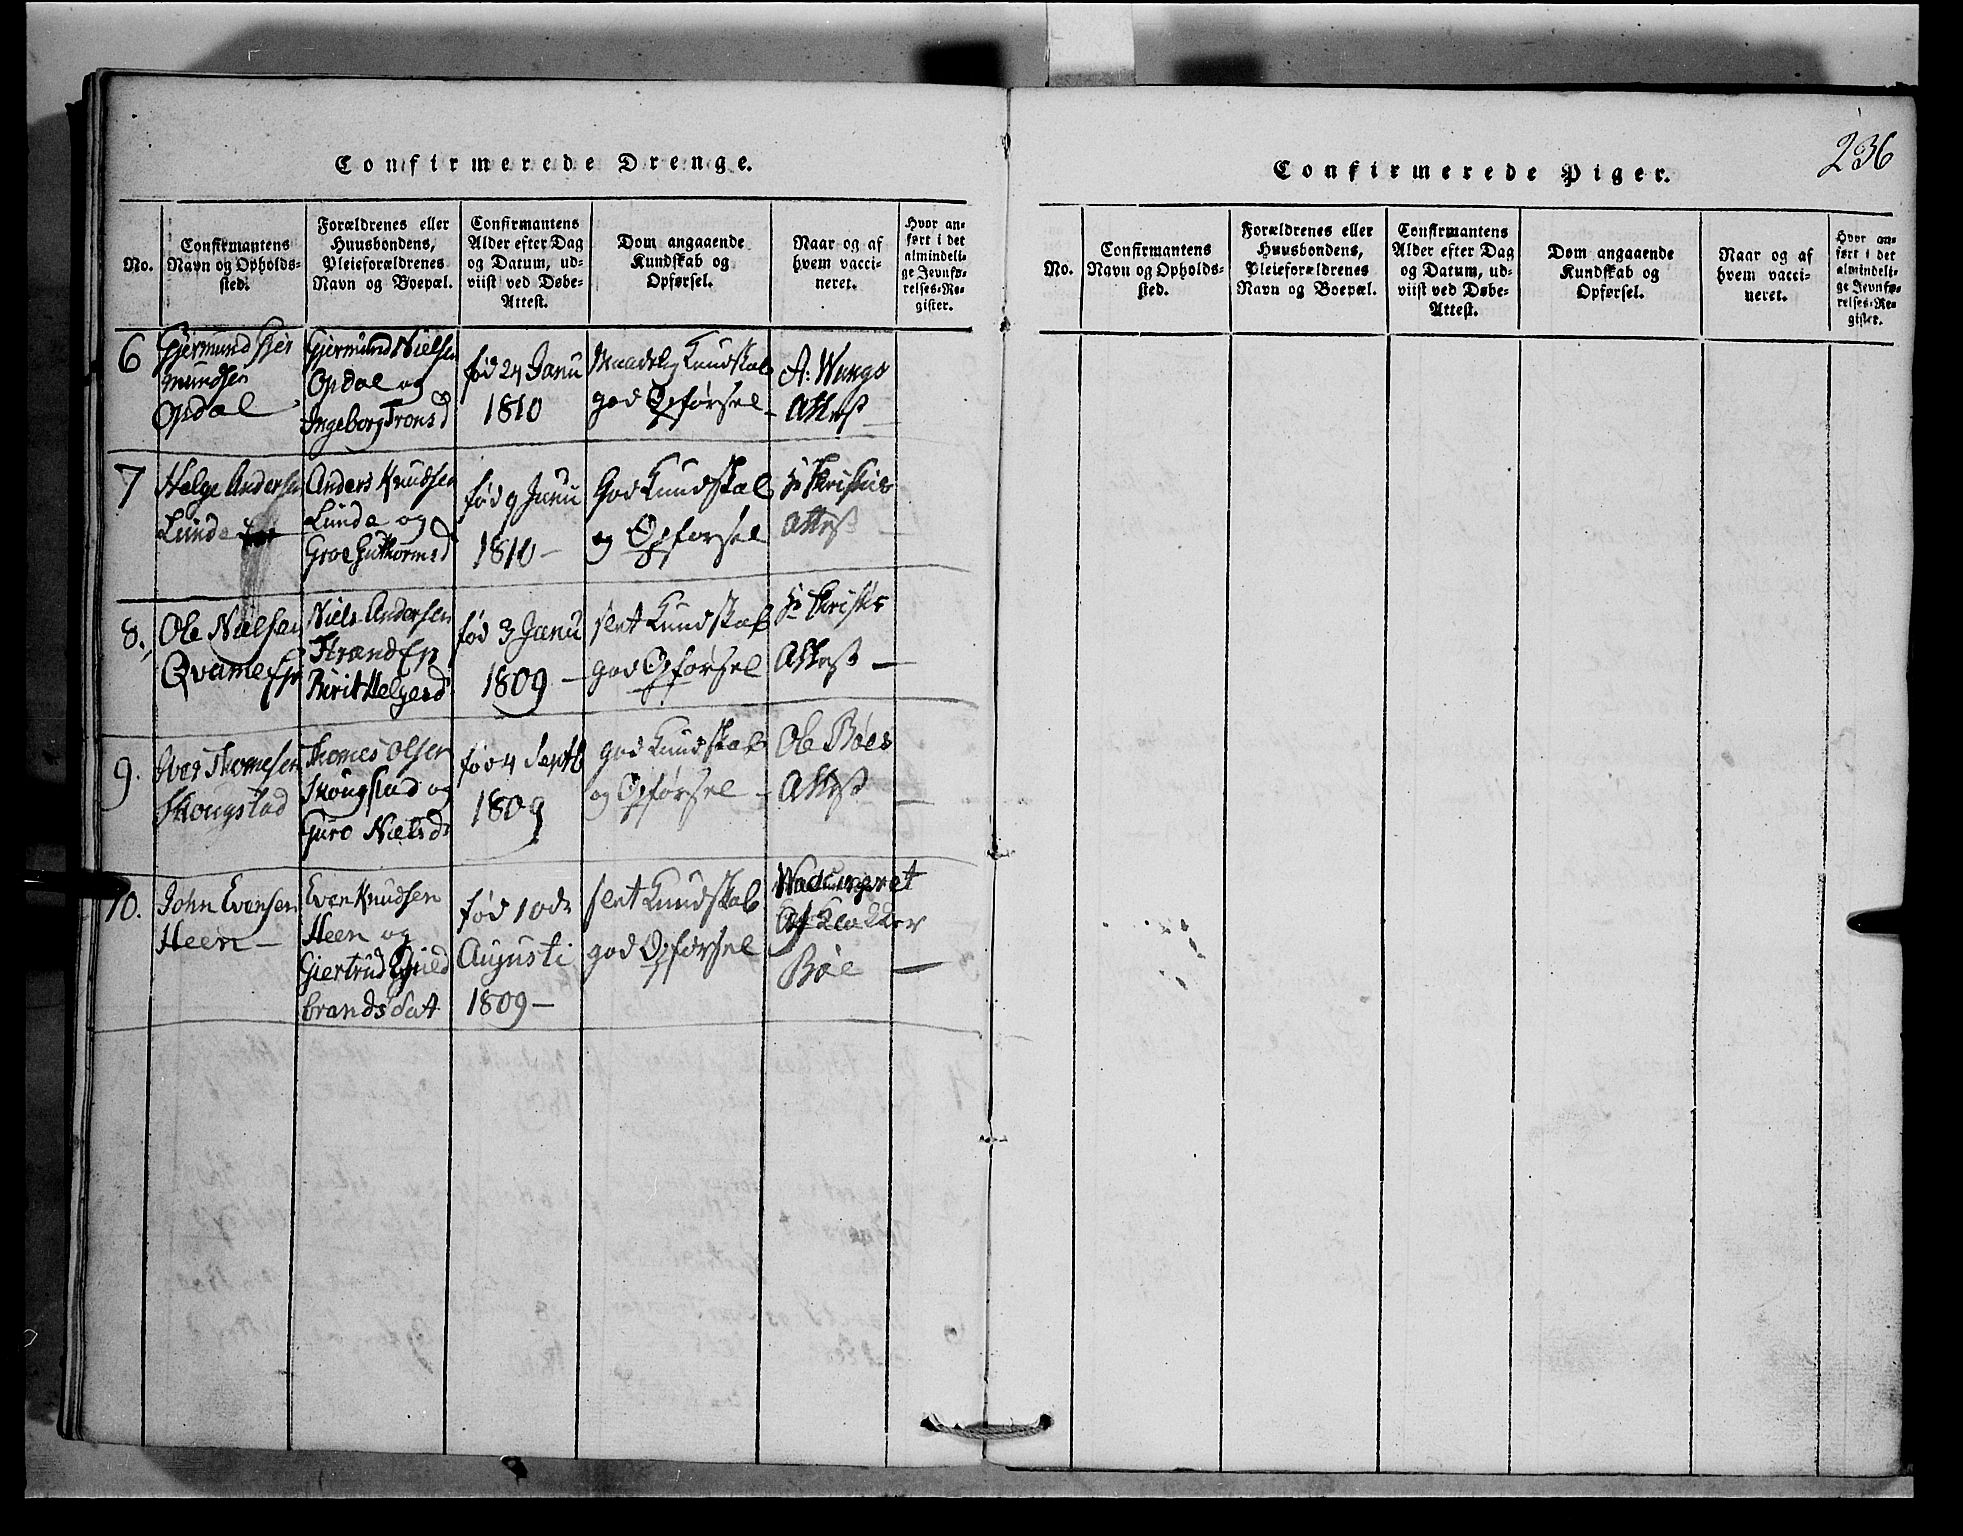 Confirmerede Drenge.
No.
Confirmantens
Navn og Opholds-
sted.
Forældrenes eller
Huusbondens,
Pleieforældrenes
Navn og Boepæl.
Confirmantens
Alder efter Dag
og Datum, ud-
viist ved Døbe-
Attest.
Dom angaaende
Kundskab og
Opførsel.
Naar og af
hvem vacci-
neret.
Hvor an-
ført i det
almindeli-
ge Jevnfø-
relses-Re-
gister.
6
Gjermund Gjer
mundsen
Opdal
Gjermund Nielsen
Opdal og
Ingeborg Tronsd
fød 24 Janu
1810
Maadelig Kundskab
god Opførsel
A: Wangs
Attest
7
Helge Andersen
Lunde
Anders Knudsen
Lunde og
Groe Guttormsd
fød 9 Janu
1810 –
God Kundskab
og Opførsel
Hr Christies
Attest
8.
Ole Nielsen
Qvame
Niels Andersen
Strand
Birit Helgesd
fød 3 Janu
1809 –
slet Kundskab
god Opførsel
Hr Christis
Attest –
9.
Iver Thomesen
Skougstad
Thomes Olsen
Skougstad og
Guro Nielsd
fød 4 Septb
1809
god Kundskab
og Opførsel –
Ole Bøes
Attest –
10.
John Evensen
Heen –
Even Knudsen
Heen og
Giertrud
brandsdat
fød 10de
Augusti
1809 –
slet Kundskab
god Opførsel
Waccineret
af Klokker
Bøe –
236
Confirmerede Piger.
No.
Confirmantens
Navn og Opholds-
sted.
Forældrenes eller
Huusbondens,
Pleieforældrenes
Navn og Boepæl.
Confirmantens
Alder efter Dag
og Datum, ud-
viist ved Døbe-
Attest.
Dom angaaende
Kundskab og
Opførsel.
Naar og af
hvem vacci-
neret.
Hvor an-
ført i det
almindeli-
ge Jevnfø-
relses-Re-
gister.